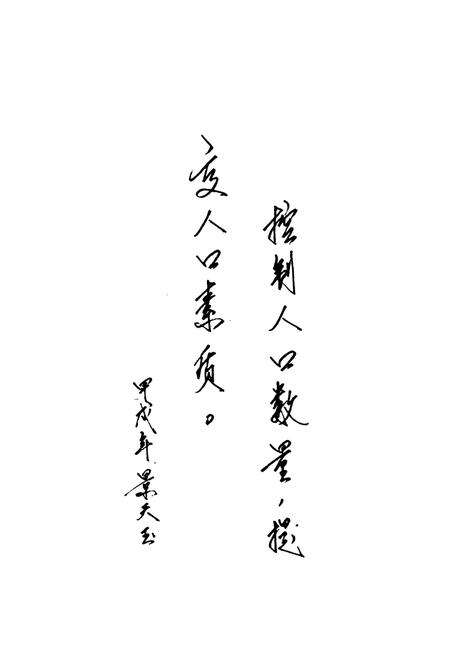 控制人口数量，提
高人口素质。
甲戌年 景天